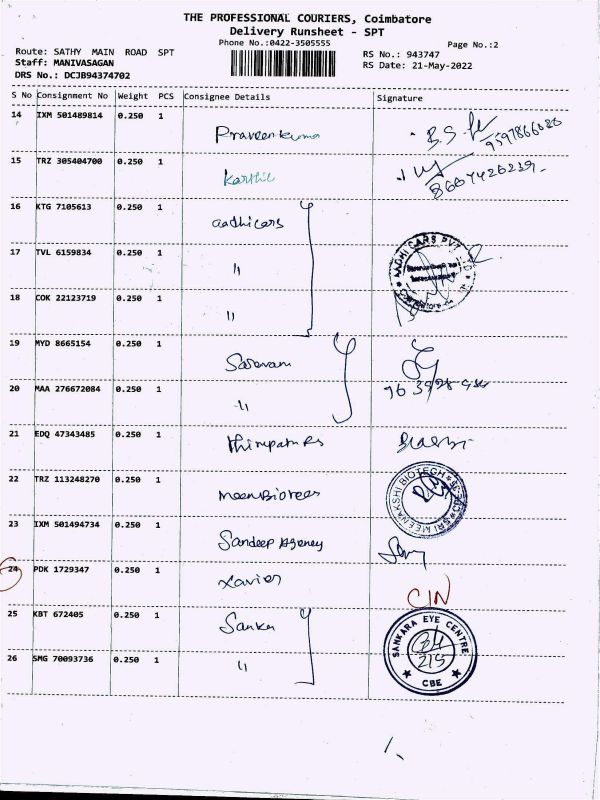 THE PROFESSIONAL COURIERS, Coimbatore
Delivery Runsheet - SPT
Phone No.:0422-3505555
Page No.:2
Route: SATHY MAIN ROAD SPT
RS No.: 943747
Staff: MANIVASAGAN
RS Date: 21-May-2022
DRS No.: DCJB94374702
S No Consignment No Weight PCS Consignee Details Signature
14 IXM 501489814 0.250 1 Praveenkuma B.S.
9597866080
15 TRZ 305404700 0.250 1 Karthic
8667426239
16 KTG 7105613 0.250 1 aadhicars
17 TVL 6159834 0.250 1 "
AADHI CARS PVT
18 COK 22123719 0.250 1 "
19 MYD 8665154 0.250 1 Saravam
20 MAA 276672084 0.250 1 "
21 EDQ 47343485 0.250 1
22 TRZ 113248270 0.250 1
SRI MEENAKSHI BIOTECH
CBE
23 IXM 501494734 0.250 1 Sandeep Agency
24 PDK 1729347 0.250 1 Xavier
CIN
25 KBT 672405 0.250 1 Sanka
SANKARA EYE CENTRE
215
26 SMG 70093736 0.250 1 "
CBE